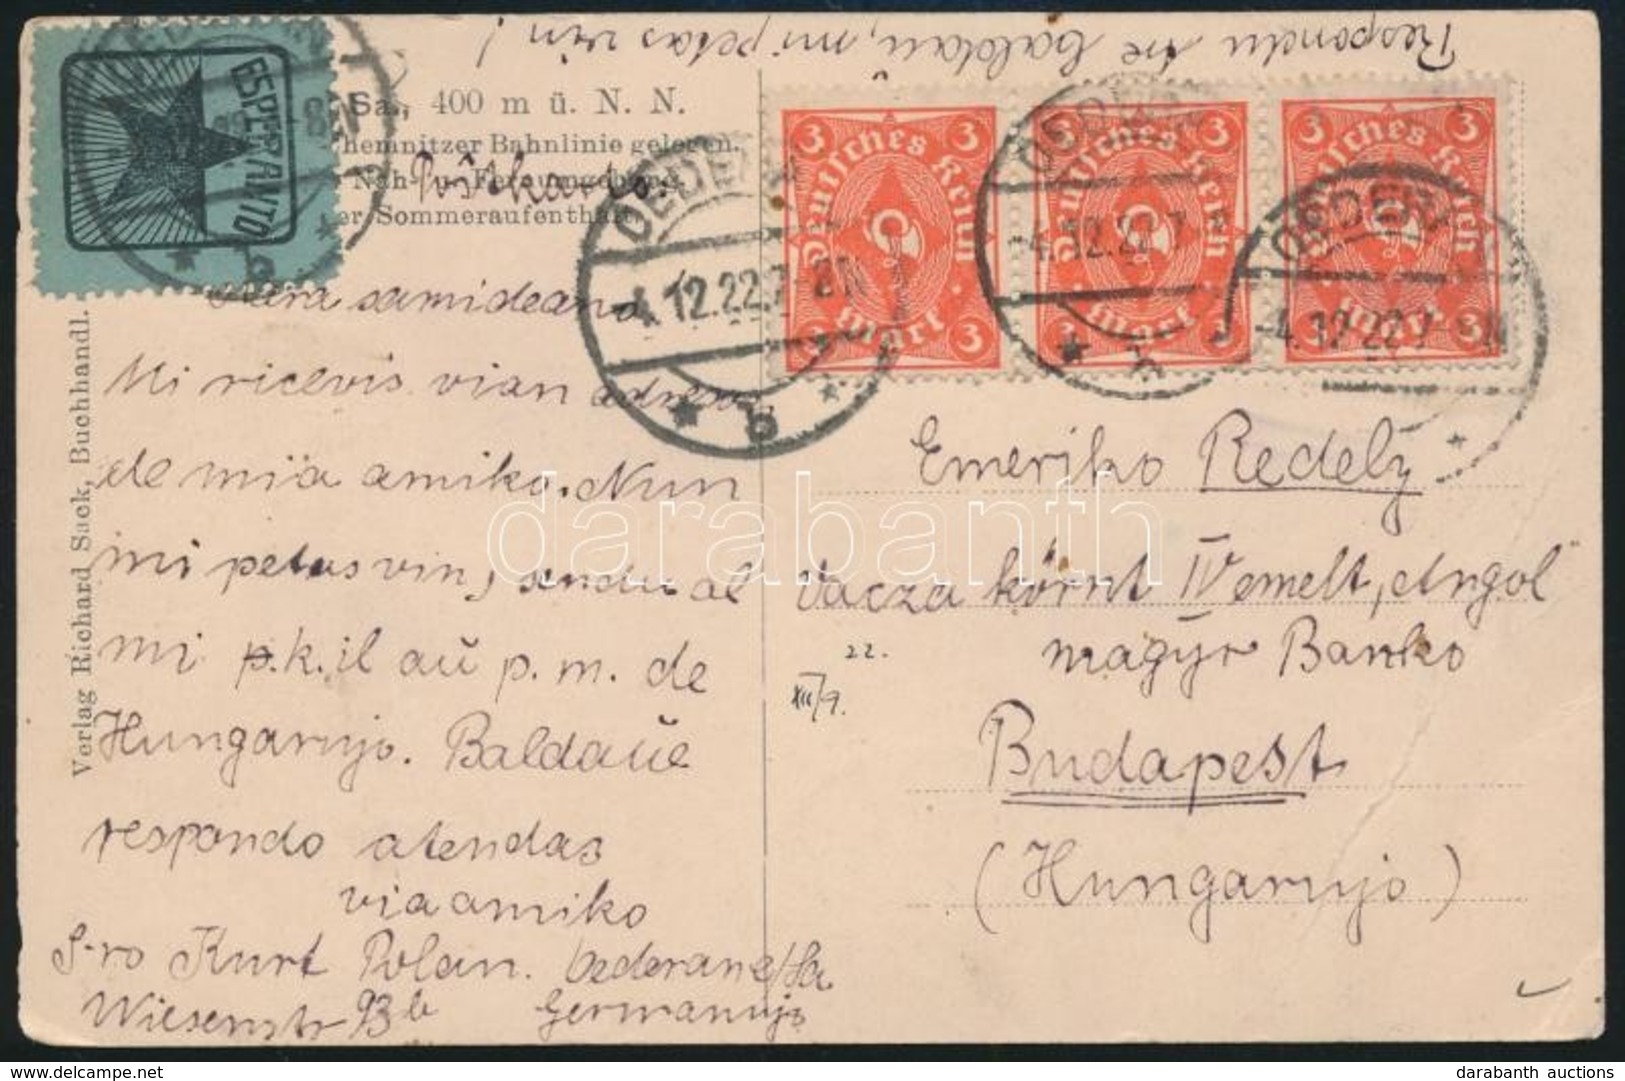 Respondu tre baldaŭ, mi petas vin!
ESPERANTO
Sa., 400 m ü. N. N.
hemnitzer Bahnlinie gelegen.
Näh- u. Fernumgebung
er Sommeraufenthalt.
Poŝtkarto.
OEDERAN
-4.12.22.7-8N
b
3 3
Deutsches Reich
3 Mark 3
3 3
Deutsches Reich
3 Mark 3
3 3
Deutsches Reich
3 Mark 3
OEDERAN
-4.12.22.7-8N
b
OEDERAN
-4.12.22.7-8N
Kara samideano,
Mi ricevis vian adreson
de mia amiko. Nun
mi petas vin, sendu al
mi p.k. il aŭ p.m. de
Hungarujo. Baldaŭe
respondo atendas
via amiko
S-ro Kurt Polan. Oederan e/Sa
Wiesenstr 93b Germanujo
Verlag Richard Sack, Buchhandl.
Emeriko Redely
Vacza körnt IV emelt, Angol
magyr Banko
Budapest
(Hungarujo)
22.
XII/9.
darabanth
darabanth auctions